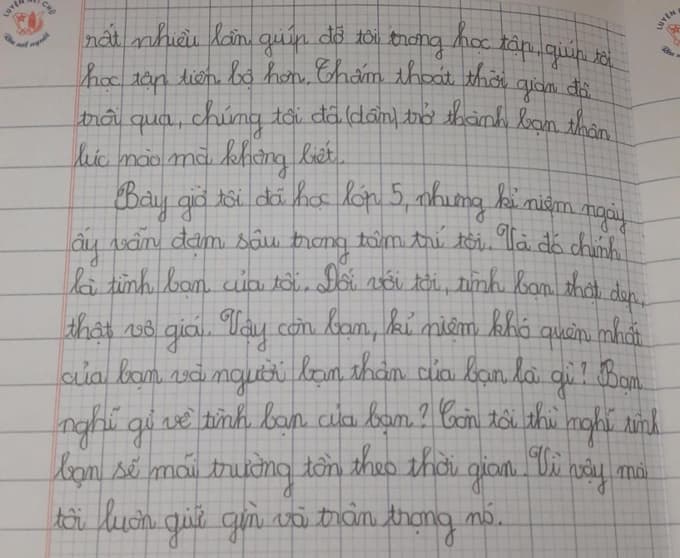 LUYỆN NÉT CHỮ
Rèn nết người
LUYỆN
rất nhiều lần giúp đỡ tôi trong học tập, giúp tôi
học tập tiến bộ hơn. Thấm thoát thời gian đã
trôi qua, chúng tôi đã (dần) trở thành bạn thân
lúc nào mà không biết.
Bây giờ tôi đã học lớp 5, nhưng kỉ niệm ngày
ấy vẫn đậm sâu trong tâm trí tôi. Và đó chính
là tình bạn của tôi. Đối với tôi, tình bạn thật đẹp,
thật vô giá. Vậy còn bạn, kỉ niệm khó quên nhất
của bạn và người bạn thân của bạn là gì? Bạn
nghĩ gì về tình bạn của bạn? Còn tôi thì nghĩ tình
bạn sẽ mãi trường tồn theo thời gian. Vì vậy mà
tôi luôn giữ gìn và trân trọng nó.